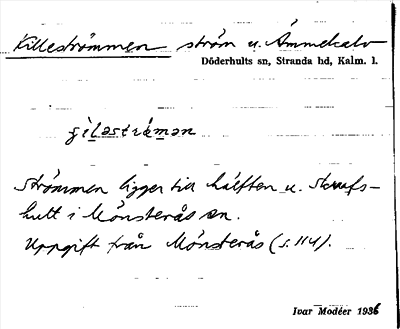 Killeströmmen ström u. Ämmekalv
Döderhults sn, Stranda hd, Kalm. l.
ɟìləstrǿmən
Strömmen ligger till hälften u. Skrufs-
hult i Mönsterås sn.
Uppgift från Mönsterås (s. 114).
Ivar Modéer 1936